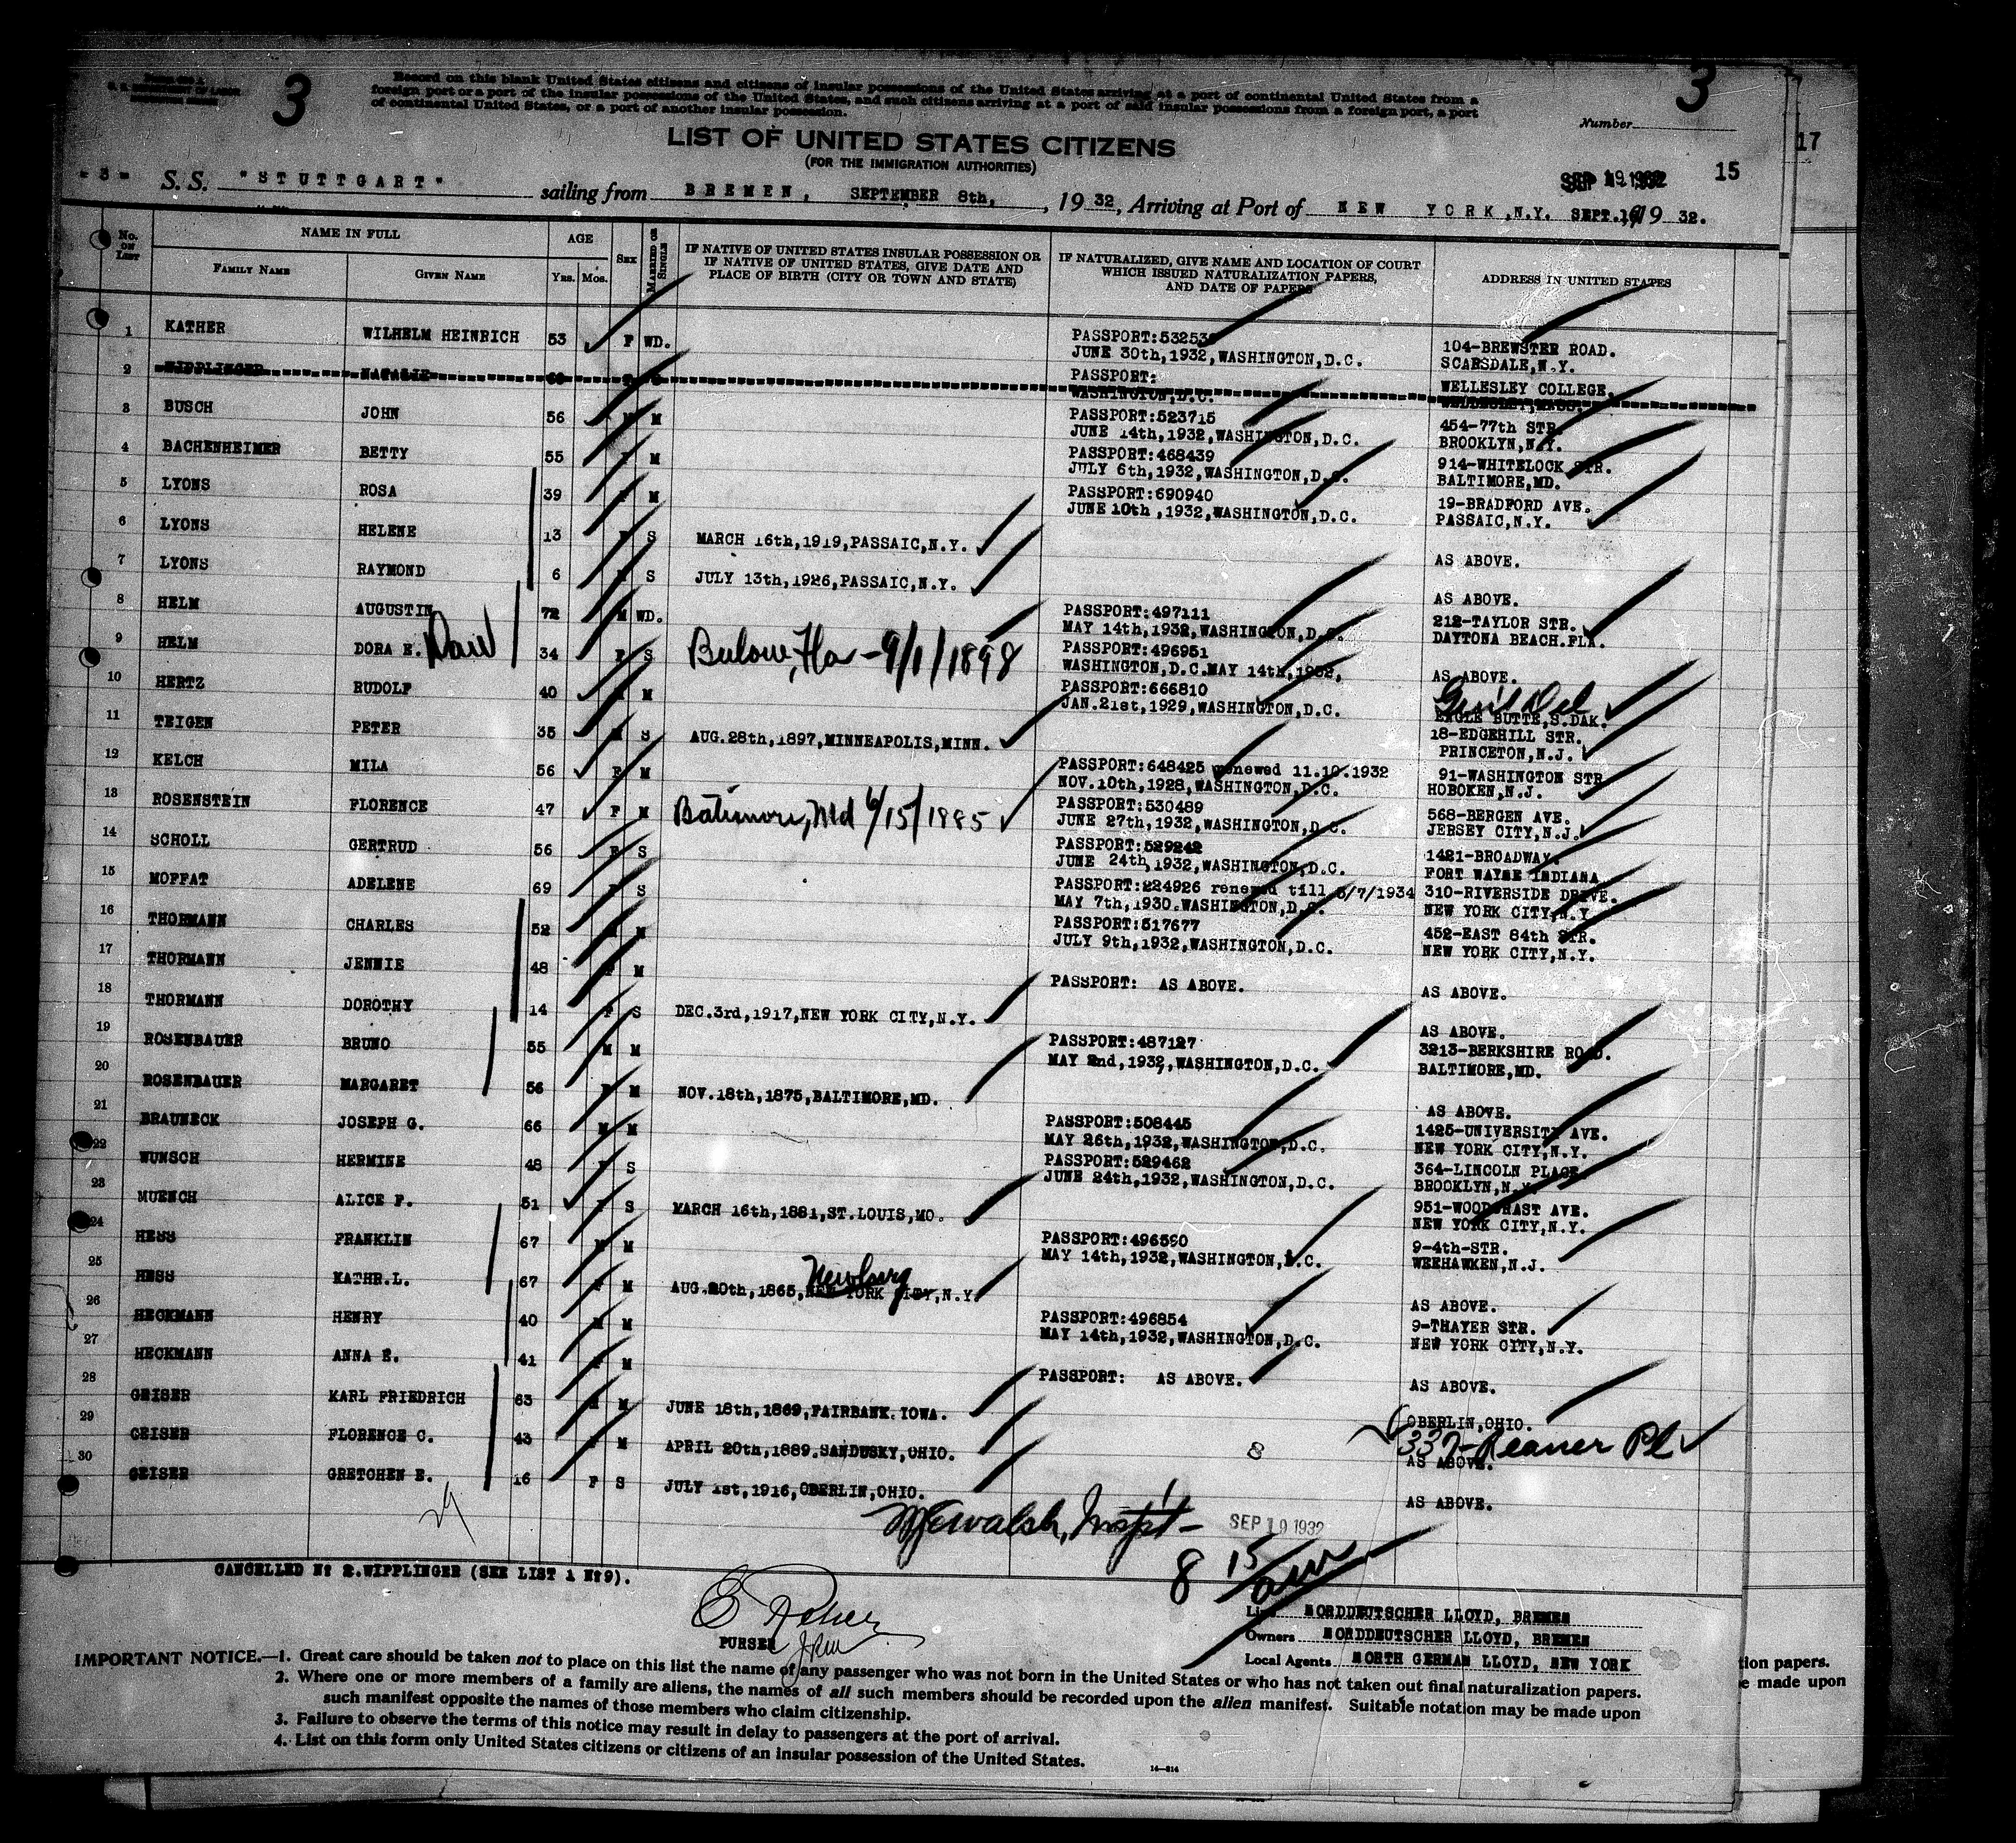 3
3
Record on this blank United States citizens and citizens of insular possessions of the United States arriving at a port of continental United States from a
foreign port or a port of the insular possessions of the United States, and such citizens arriving at a port of said insular possessions from a foreign port, a port
of continental United States, or a port of another insular possession.
Number
LIST OF UNITED STATES CITIZENS
(FOR THE IMMIGRATION AUTHORITIES)
17
15
- 3 - S. S. "STUTTGART" sailing from BREMEN, SEPTEMBER 8th, , 19 32, Arriving at Port of NEW YORK, N.Y. SEPT. 19 32.
No. ON LIST
NAME IN FULL
FAMILY NAME
GIVEN NAME
AGE
YRS. MOS.
SEX
MARRIED OR SINGLE
IF NATIVE OF UNITED STATES INSULAR POSSESSION OR
IF NATIVE OF UNITED STATES, GIVE DATE AND
PLACE OF BIRTH (CITY OR TOWN AND STATE)
IF NATURALIZED, GIVE NAME AND LOCATION OF COURT
WHICH ISSUED NATURALIZATION PAPERS,
AND DATE OF PAPERS
ADDRESS IN UNITED STATES
1 KATHER WILHELM HEINRICH 53 F WD. PASSPORT: 104-BREWSTER ROAD.
JUNE 30th,1932,WASHINGTON,D.C. SCARSDALE,N.Y.
2 WIPPLINGER NATALIE PASSPORT: WELLESLEY COLLEGE.
WASHINGTON,D.C. WELLESLEY,MASS.
3 BUSCH JOHN 56 M M PASSPORT:523715 454-77th STR.
JUNE 14th,1932,WASHINGTON,D.C. BROOKLYN,N.Y.
4 BACHENHEIMER BETTY 55 F M PASSPORT:468439 914-WHITELOCK STR.
JULY 6th,1932,WASHINGTON,D.C. BALTIMORE,MD.
5 LYONS ROSA 39 F M PASSPORT:690940 19-BRADFORD AVE.
JUNE 10th,1932,WASHINGTON,D.C. PASSAIC,N.Y.
6 LYONS HELENE 13 F S MARCH 16th,1919,PASSAIC,N.Y. AS ABOVE.
7 LYONS RAYMOND 6 M S JULY 13th,1926,PASSAIC,N.Y. AS ABOVE.
8 HELM AUGUSTIN 72 M WD. PASSPORT:497111 212-TAYLOR STR.
MAY 14th,1932,WASHINGTON,D.C. DAYTONA BEACH.FLA.
9 HELM DORA E. 34 F S Bulow, Fla - 9/1/1898 PASSPORT:496951
WASHINGTON,D.C.MAY 14th,1932, AS ABOVE.
10 HERTZ RUDOLF 40 M M PASSPORT:666810 Gen'l Del
JAN.21st,1929,WASHINGTON,D.C. EAGLE BUTTE,S.DAK.
11 TEIGEN PETER 35 M S AUG.28th,1897,MINNEAPOLIS,MINN. 18-EDGEHILL STR.
PRINCETON,N.J.
12 KELCH MILA 56 F M PASSPORT:648425 renewed 11.10.1932 91-WASHINGTON STR
NOV.10th,1928,WASHINGTON,D.C. HOBOKEN,N.J.
13 ROSENSTEIN FLORENCE 47 F M Batimore, Md 6/15/1885 PASSPORT:530489 568-BERGEN AVE.
JUNE 27th,1932,WASHINGTON,D.C. JERSEY CITY,N.J.
14 SCHOLL GERTRUD 56 F S PASSPORT:529242 1421-BROADWAY.
JUNE 24th,1932,WASHINGTON,D.C. FORT WAYNE INDIANA
15 MOFFAT ADELENE 69 F S PASSPORT:224926 renewed till 5/7/1934 310-RIVERSIDE DRIVE.
MAY 7th,1930.WASHINGTON,D.C. NEW YORK CITY,N.Y
16 THORMANN CHARLES 52 M M PASSPORT:517677 452-EAST 84th STR.
JULY 9th,1932,WASHINGTON,D.C. NEW YORK CITY,N.Y.
17 THORMANN JENNIE 48 F M PASSPORT: AS ABOVE. AS ABOVE.
18 THORMANN DOROTHY 14 F S DEC.3rd,1917,NEW YORK CITY,N.Y. AS ABOVE.
19 ROSENBAUER BRUNO 55 M M PASSPORT:487127 3213-BERKSHIRE ROAD.
MAY 2nd,1932,WASHINGTON,D.C. BALTIMORE,MD.
20 ROSENBAUER MARGARET 56 F M NOV.18th,1875,BALTIMORE,MD. AS ABOVE.
21 BRAUNECK JOSEPH G. 66 M M PASSPORT:508445 1425-UNIVERSITY AVE.
MAY 26th,1932,WASHINGTON,D.C. NEW YORK CITY,N.Y.
22 WUNSCH HERMINE 48 F S PASSPORT:529462 364-LINCOLN PLACE.
JUNE 24th,1932,WASHINGTON,D.C. BROOKLYN,N.Y.
23 MUENCH ALICE F. 51 F S MARCH 16th,1881,ST.LOUIS,MO. 951-WOODCHAST AVE.
NEW YORK CITY,N.Y.
24 HESS FRANKLIN 67 M M PASSPORT:496590 9-4th-STR.
MAY 14th,1932,WASHINGTON,D.C. WEEHAWKEN,N.J.
25 HESS KATHR.L. 67 F M Newburg
AUG.20th,1865,NEW YORK CITY,N.Y. AS ABOVE.
26 HECKMANN HENRY 40 M M PASSPORT:496854 9-THAYER STR.
MAY 14th,1932,WASHINGTON,D.C. NEW YORK CITY,N.Y.
27 HECKMANN ANNA E. 41 F M PASSPORT: AS ABOVE. AS ABOVE.
28 GEISER KARL FRIEDRICH 63 M M JUNE 18th,1869,FAIRBANK.IOWA. OBERLIN,OHIO.
29 GEISER FLORENCE C. 43 F M APRIL 20th,1889.SANDUSKY,OHIO. 8 337-Reamer Pl
AS ABOVE.
30 GEISER GRETCHEN E. 16 F S JULY 1st,1916,OBERLIN,OHIO. AS ABOVE.
Walsh, Inspt- SEP 19 1932
8 15
CANCELLED No 2.WIPPLINGER (SEE LIST 1 No9).
PURSER
Line NORDDEUTSCHER LLOYD, BREMEN
Owners NORDDEUTSCHER LLOYD, BREMEN
Local Agents NORTH GERMAN LLOYD, NEW YORK
IMPORTANT NOTICE.—1. Great care should be taken not to place on this list the name of any passenger who was not born in the United States or who has not taken out final naturalization papers.
2. Where one or more members of a family are aliens, the names of all such members should be recorded upon the alien manifest. Suitable notation may be made upon
such manifest opposite the names of those members who claim citizenship.
3. Failure to observe the terms of this notice may result in delay to passengers at the port of arrival.
4. List on this form only United States citizens or citizens of an insular possession of the United States.
14—814
tion papers.
e made upon